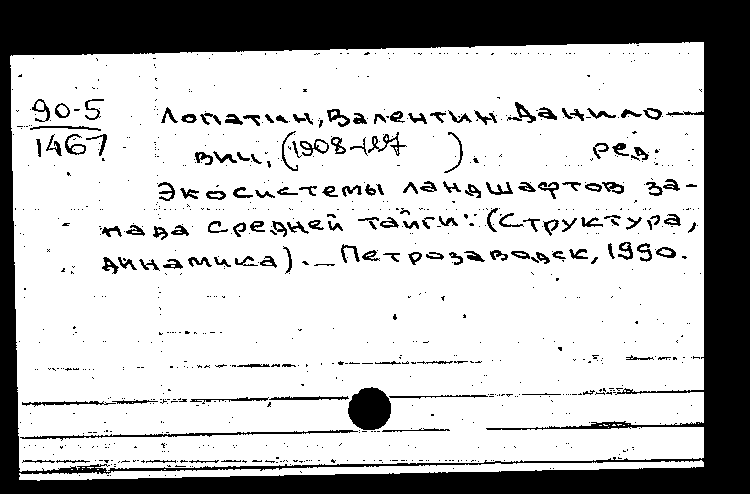 90-5
1467
Лопатин, Валентин Данило-
вич, (1908- ). ред.
Экосистемы ландшафтов за-
пада средней тайги: (Структура,
динамика). – Петрозаводск, 1990.